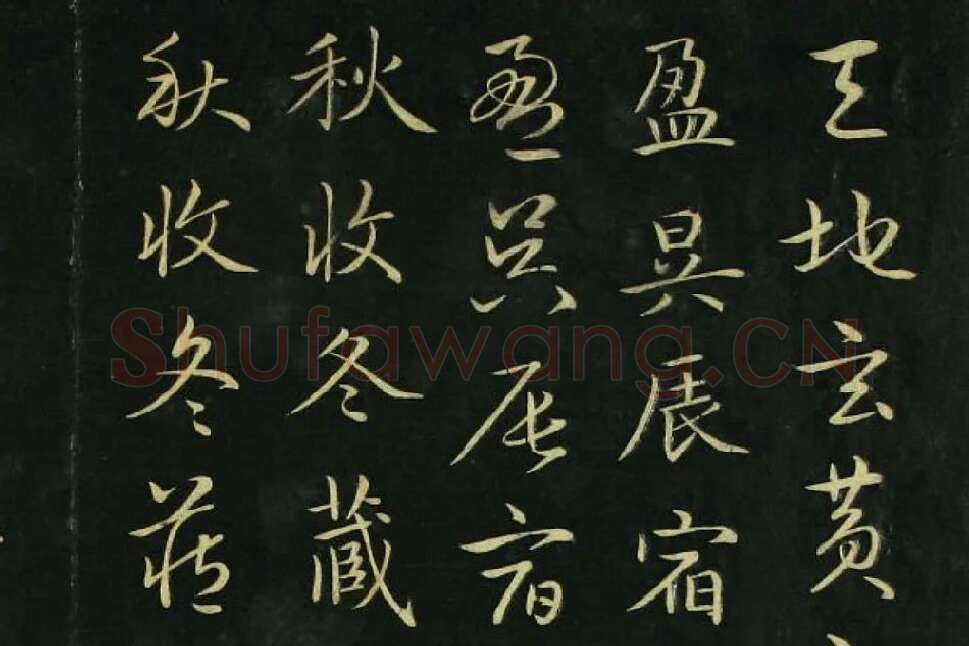 天地玄黄
盈昃辰宿
盈昃辰宿
秋收冬藏
秋收冬藏
Shufawang.CN